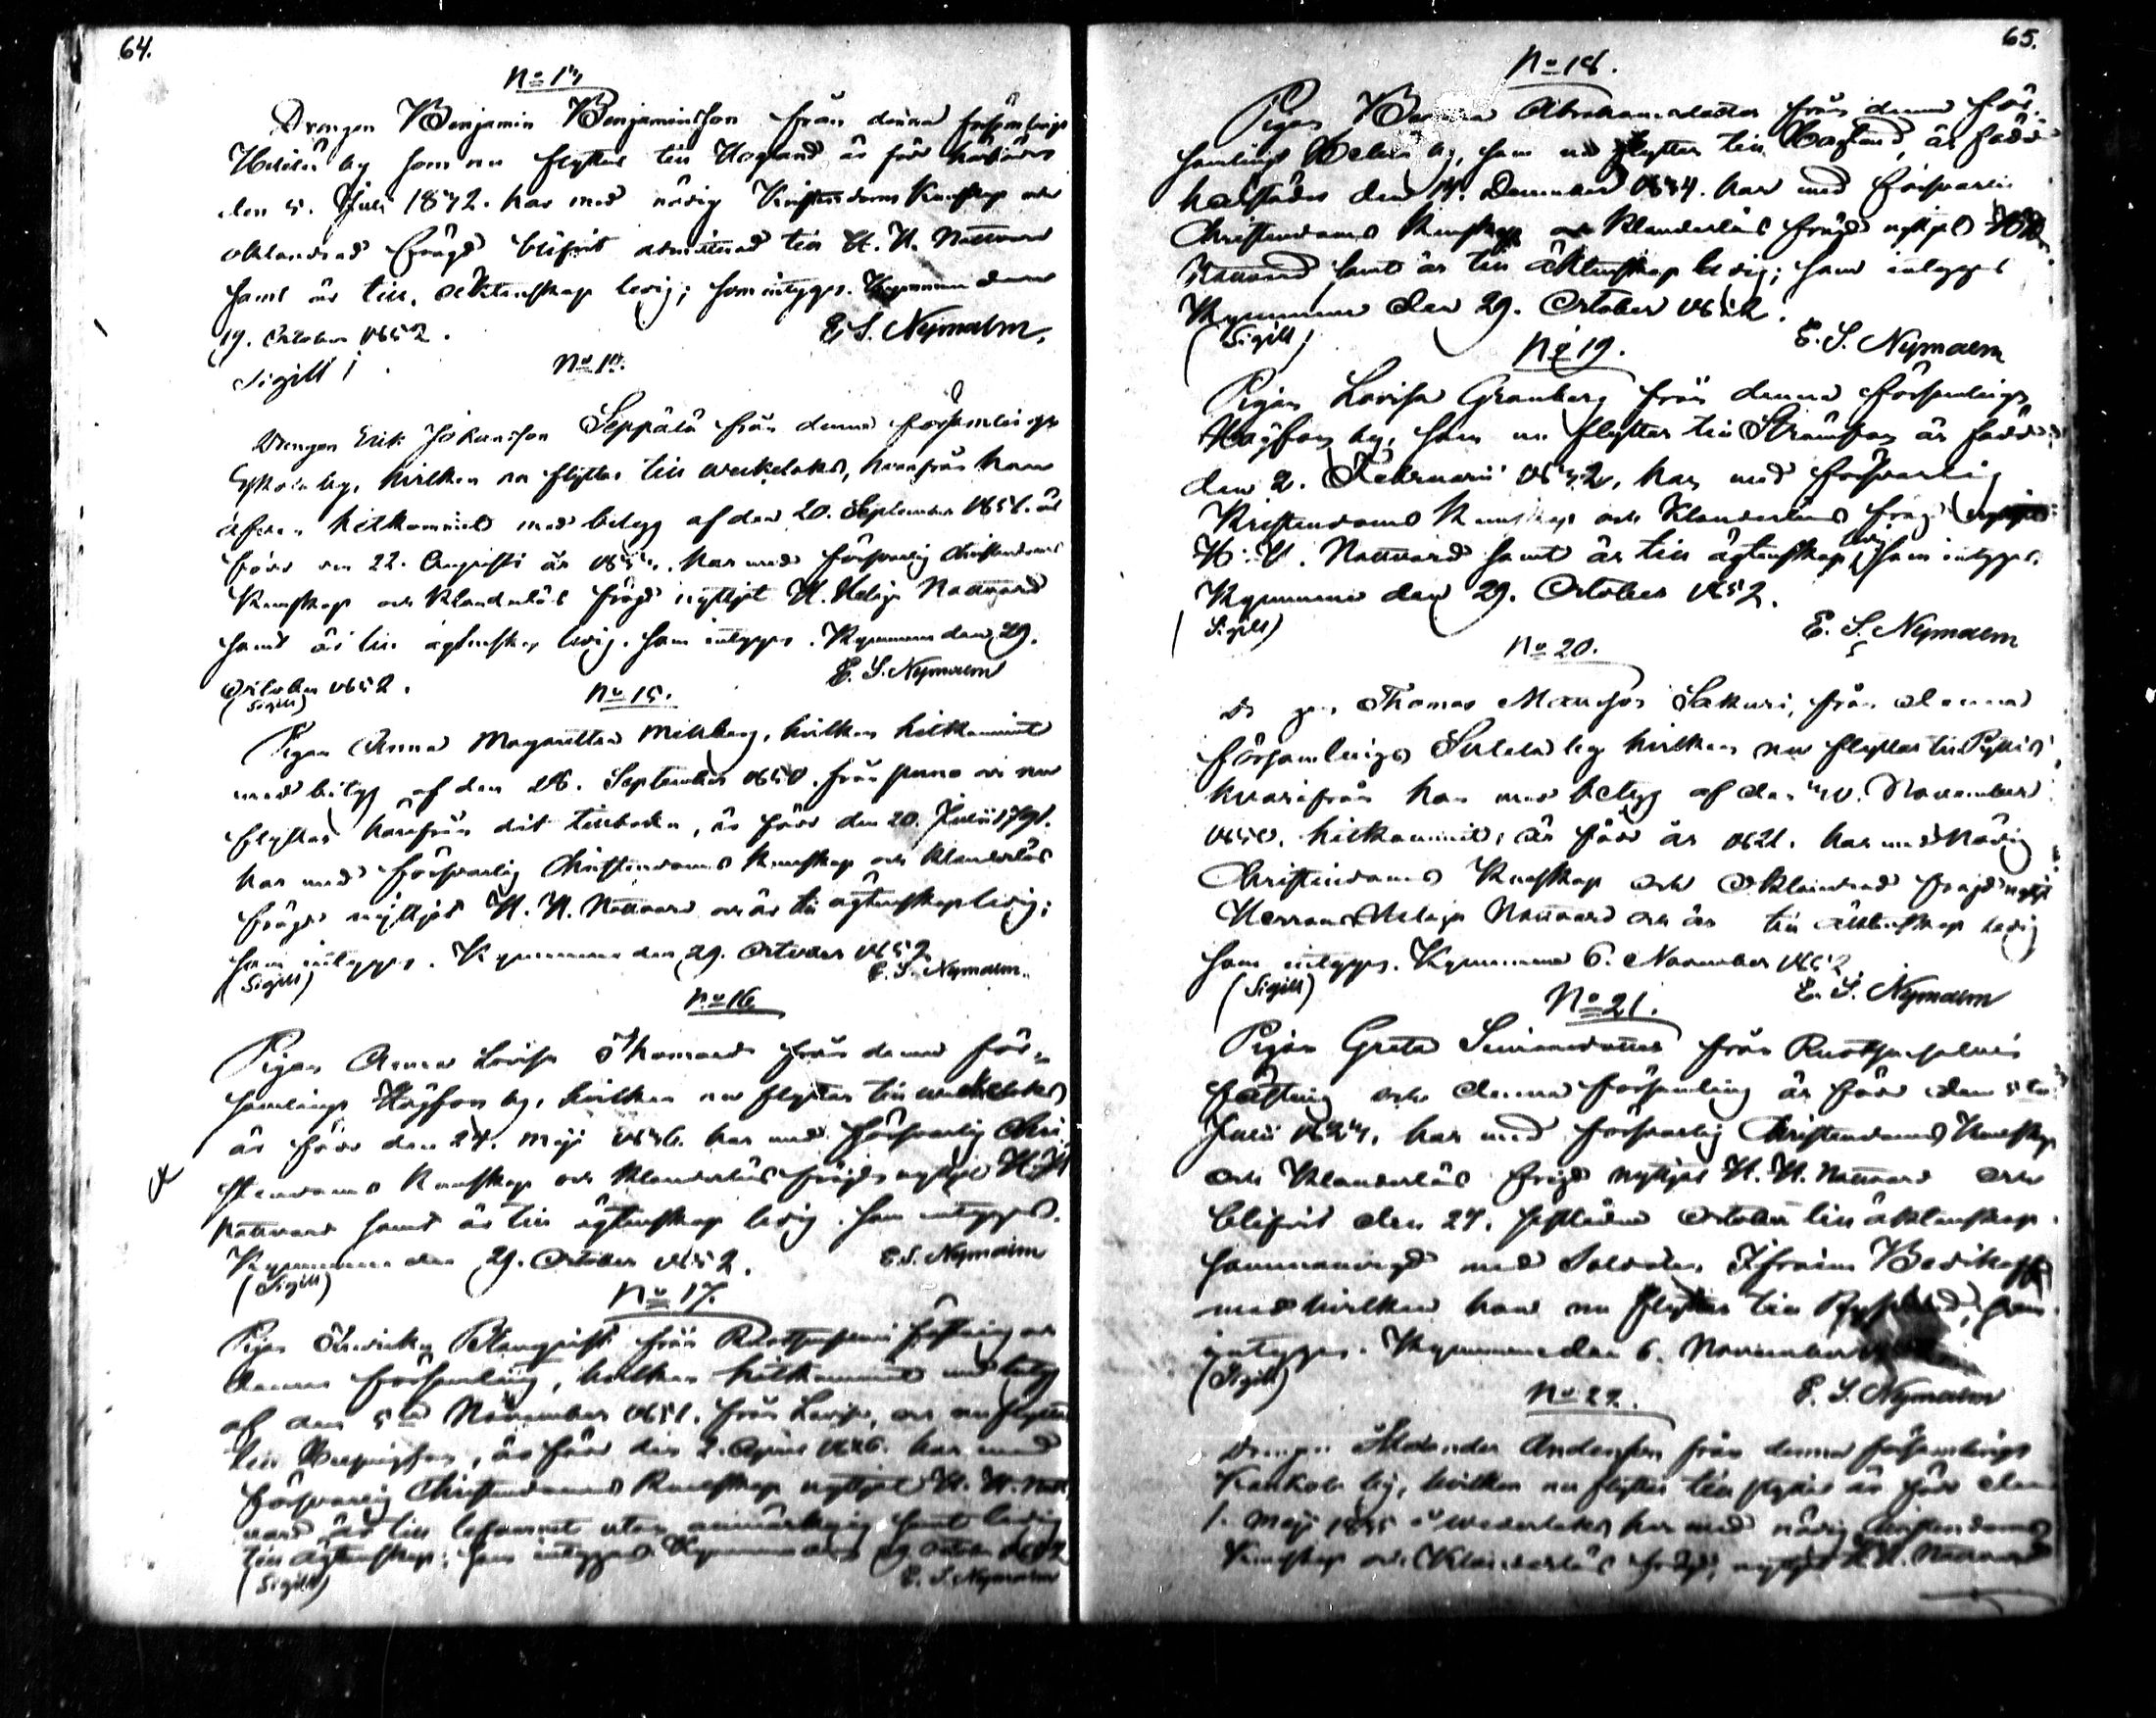 64.
No 13
Drengen Benjamin Benjaminsson från denna församlings
by som nu flyttar till Hogland är född härstädes
den 5. Juli 1832. har med nödig Kristendoms Kunskap och
oklandrad frägd blifvit admitterad till H. H. Nattvard
samt är till äktenskap ledig; som intygas. Kymmene den
19. October 1852. E. S. Nymalm.
Sigill
No 14.
Drengen Erik Johansson Seppälä från denna församlings
by, hvilken nu flyttar till Weckelaks, hvarifrån han
äfven hitkommit med betyg af den 20. September 1851. är
född den 22. Augusti år har med försvarlig Christendoms
Kunskap och Klanderlös frägd nyttjat H. Helga Nattvard
samt är till ägtenskap ledig. som intygas. Kymmene den 29.
October 1852. E. S. Nymalm
(Sigill)
No 15.
Pigan Anna Magaretta hvilken hitkommit
med betyg af den 26. September 1850. från och nu
flyttar härifrån dit tillbaka, är född den 20. Julii
har med försvarlig Christendoms Kunskap och Klanderlös
frägd nyttjat H. H. Nattvard och är till ägtenskap ledig;
som intygas. Kymmene den 29. October 1852
(Sigill) E. S. Nymalm.
No 16
Pigan Anna Lovisa Thomasd. från denna för-
samlings Högfors by, hvilken nu flyttar till Weckelaks
är född den 24. Maji har med försvarlig Chri-
stendoms Kunskap och Klanderlös frägd nyttjat H. H.
Nattvard samt är till ägtenskap ledig. som intygas.
Kymmene den 29. October 1852.
(Sigill) E. S. Nymalm
No 17.
Pigan Fredrika från Ruotsinsalmi fästning och
denna församling, hvilken hitkommit med betyg
af den 5te November 1851. från Lovisa, och nu flyttar
till Helsingfors, är född den 2. April har med
försvarlig Christendoms Kunskap nyttjat H. H. Natt-
vard är till lefvernet utan anmärkning samt ledig
till ägtenskap; som intygas Kymmene den 29 October 1852
(Sigill) E. S. Nymalm
65.
No 18.
Pigan Abrahamsdotter från denna för-
samlings by, som nu flyttar till Hogland, är född
härstädes den 14. December 1834. har med försvarlig
Christendoms Kunskap och Klanderlös frägd nyttjat H. H.
Nattvard samt är till äktenskap ledig; som intygas
Kymmene den 29. October 1852.
(Sigill) E. S. Nymalm
No 19.
Pigan Lovisa Granberg från denna församlings
Högfors by, som nu flyttar till Strömfors är född
den 2. Februarii 1832, har med försvarlig
Kristendoms Kunskap och Klanderlös frägd nyttjat
H. H. Nattvard samt är till ägtenskap ledig, som intygas.
Kymmene den 29. October 1852.
(Sigill) E. S. Nymalm
No 20.
Drengen Thomas Mattsson Sakuri, från denna
församlings by hvilken nu flyttar till Pyttis
hvarifrån han med betyg af den November
1850. hitkommit, är född år 1821. har med nödig
Christendoms Kunskap och Oklandrad frägd nyttjat
Herrans Heliga Nattvard och är till äktenskap ledig
som intygas. Kymmene 6. November 1852
(Sigill) E. S. Nymalm
No 21.
Pigan Greta Simonsdotter från Ruotsinsalmi
fästning och denna församling är född den 5te
Julii har med försvarlig Christendoms Kunskap
och Klanderlös frägd nyttjat H. H. Nattvard och
blifvit den 27. sistledne October till äktenskap
sammanvigd med Soldaten
med hvilken hon nu flyttar till Ryssland, som
intygas. Kymmene den 6. November
(Sigill) E. S. Nymalm
No 22.
Drengen Alexander Andersson från denna församlings
by, hvilken nu flyttar till Pyttis är född den
1. Maji 1835 i Wederlaks har med nödig Christendoms
Kunskap och Klanderlös frägd, nyttjat H. H. Nattvard